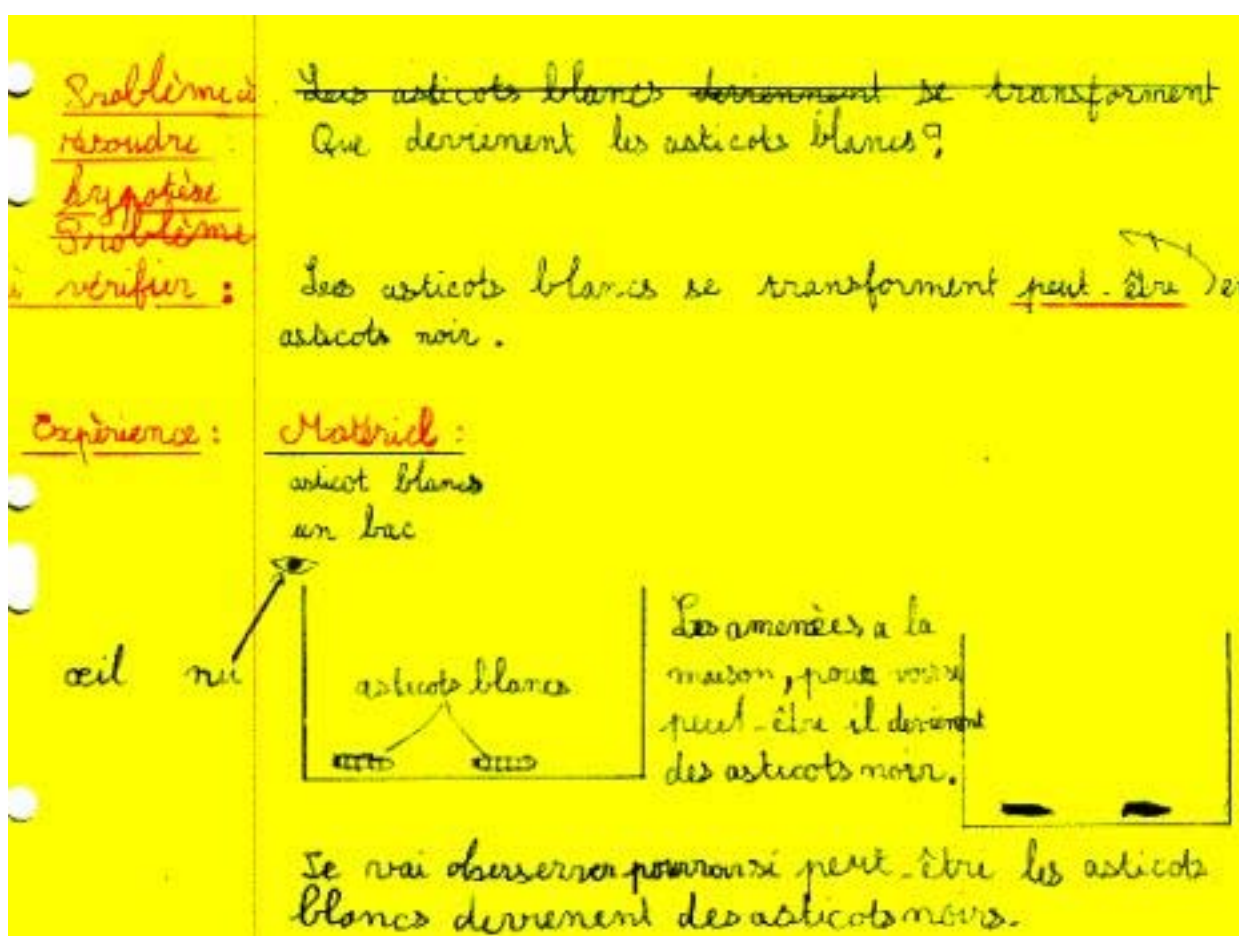 Problème à
résoudre :
Les asticots blancs deviennent se transforment
Que devienent les asticots blancs ?
hypotèse
Problème
à vérifier :
Les asticots blancs se transforment peut-être en
asticots noir.
Expèrience :
Matériel :
asticot blancs
un bac
œil nu
asticots blancs
Les amenèes a la
maison, pour voir si
peut-être il devienent
des asticots noir.
Je vai oberserver si peut-être les asticots
blancs devienent des asticots noirs.